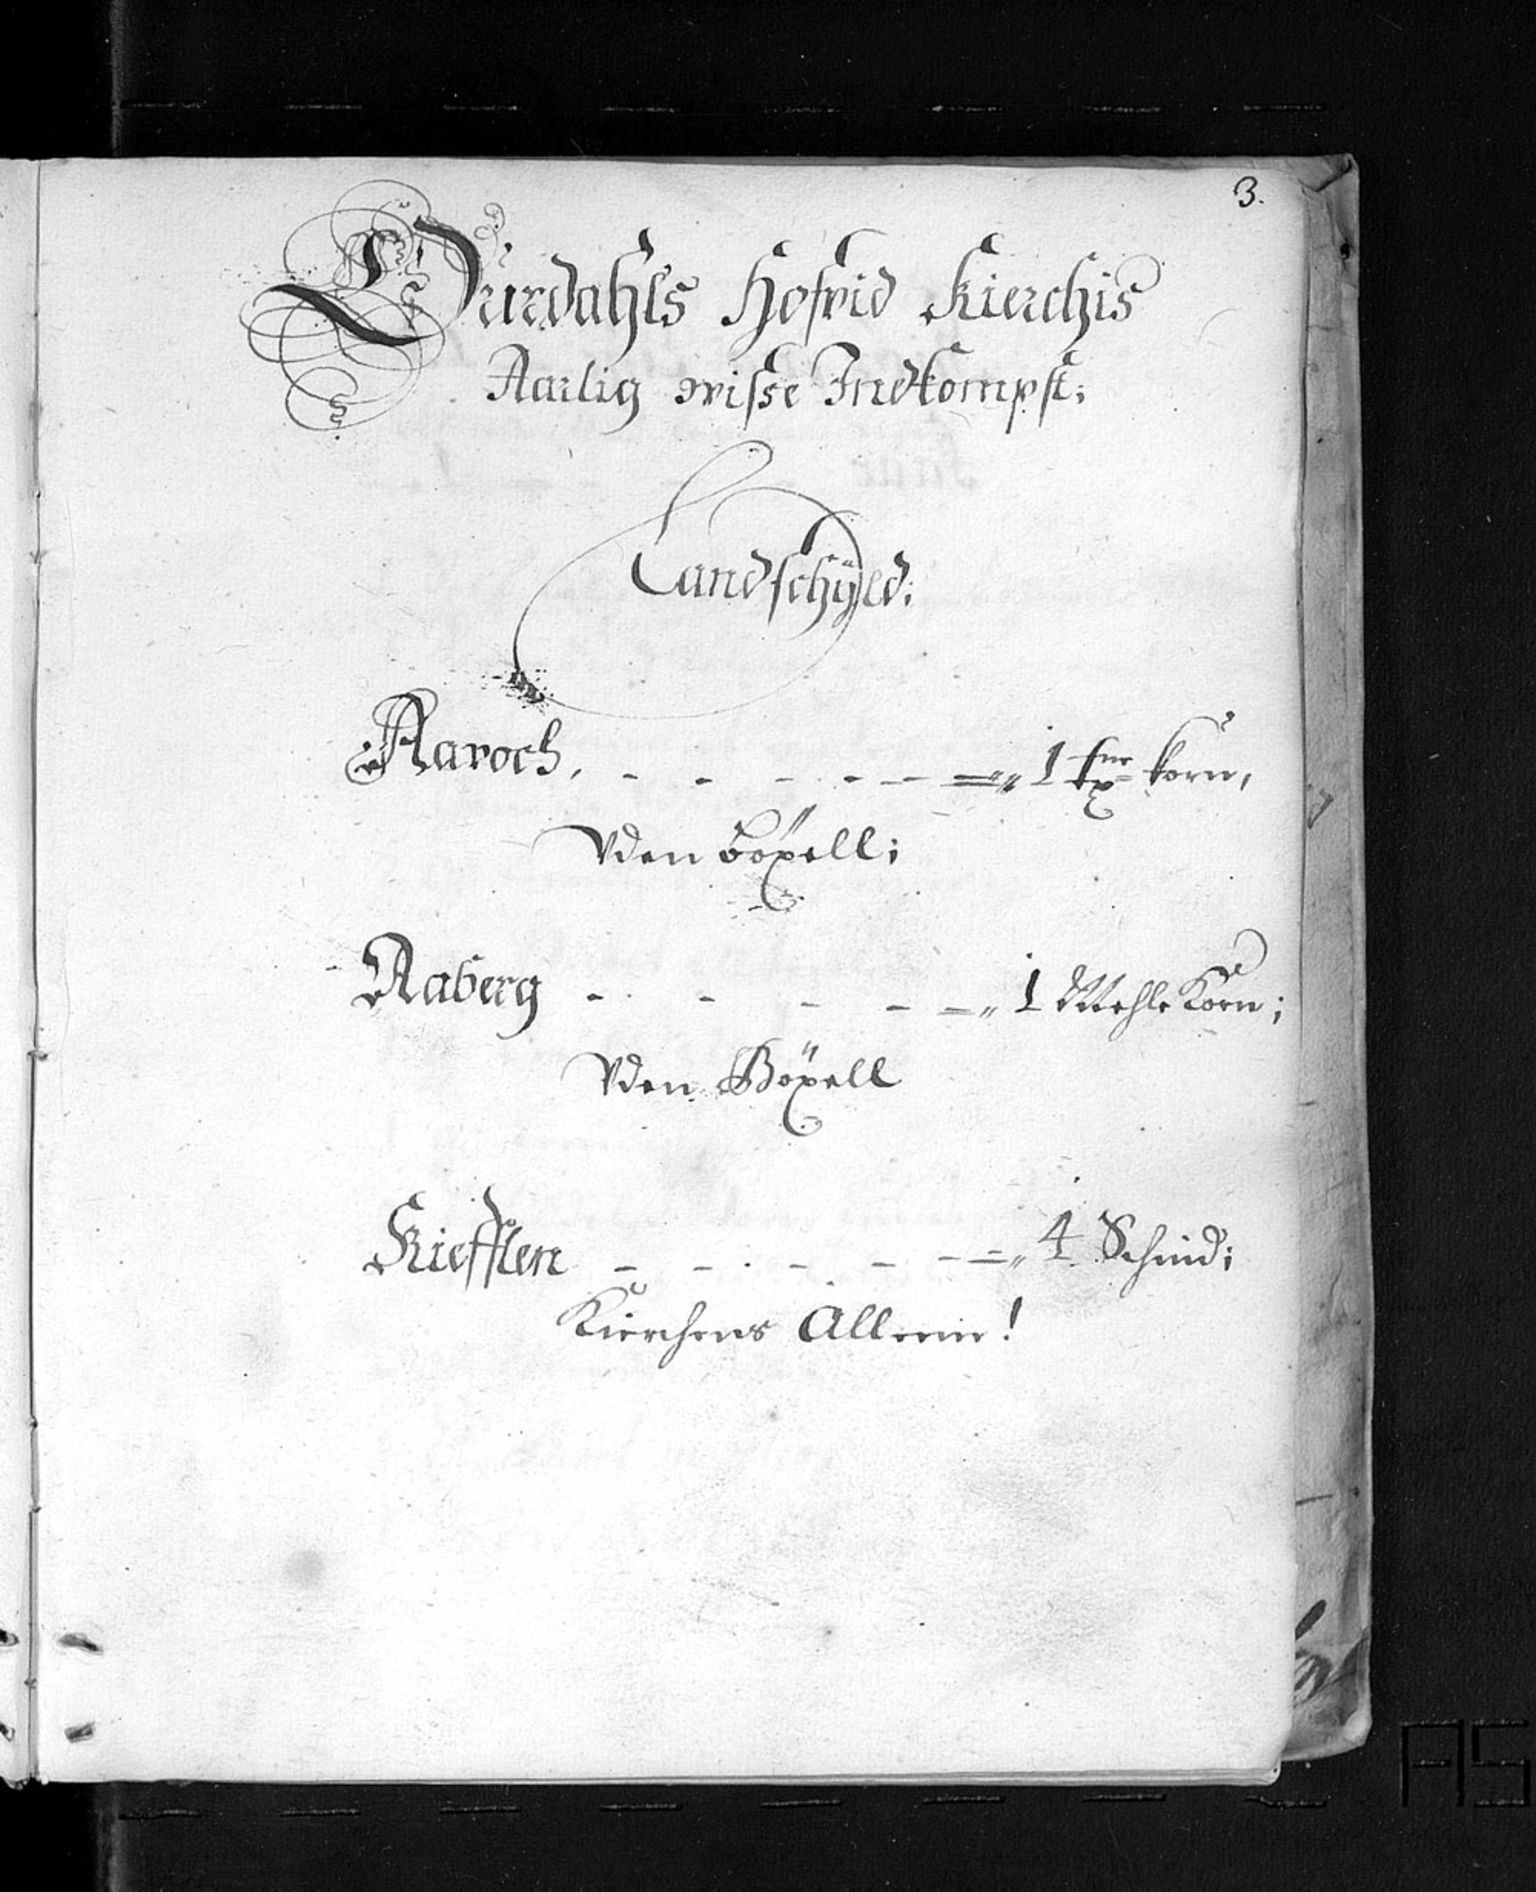 3.
Hurdahls Hofvid Kierchis
Aarlig visse Indkompst;
Landschÿld;
Aavoch, - - - - - - 1 korn,
Vden böxell;
Aaberg - - - - - 1 Mehle Korn;
Vden Böxell
Kiefflen - - - - - - 4 Schind;
Kierchens Alleene!